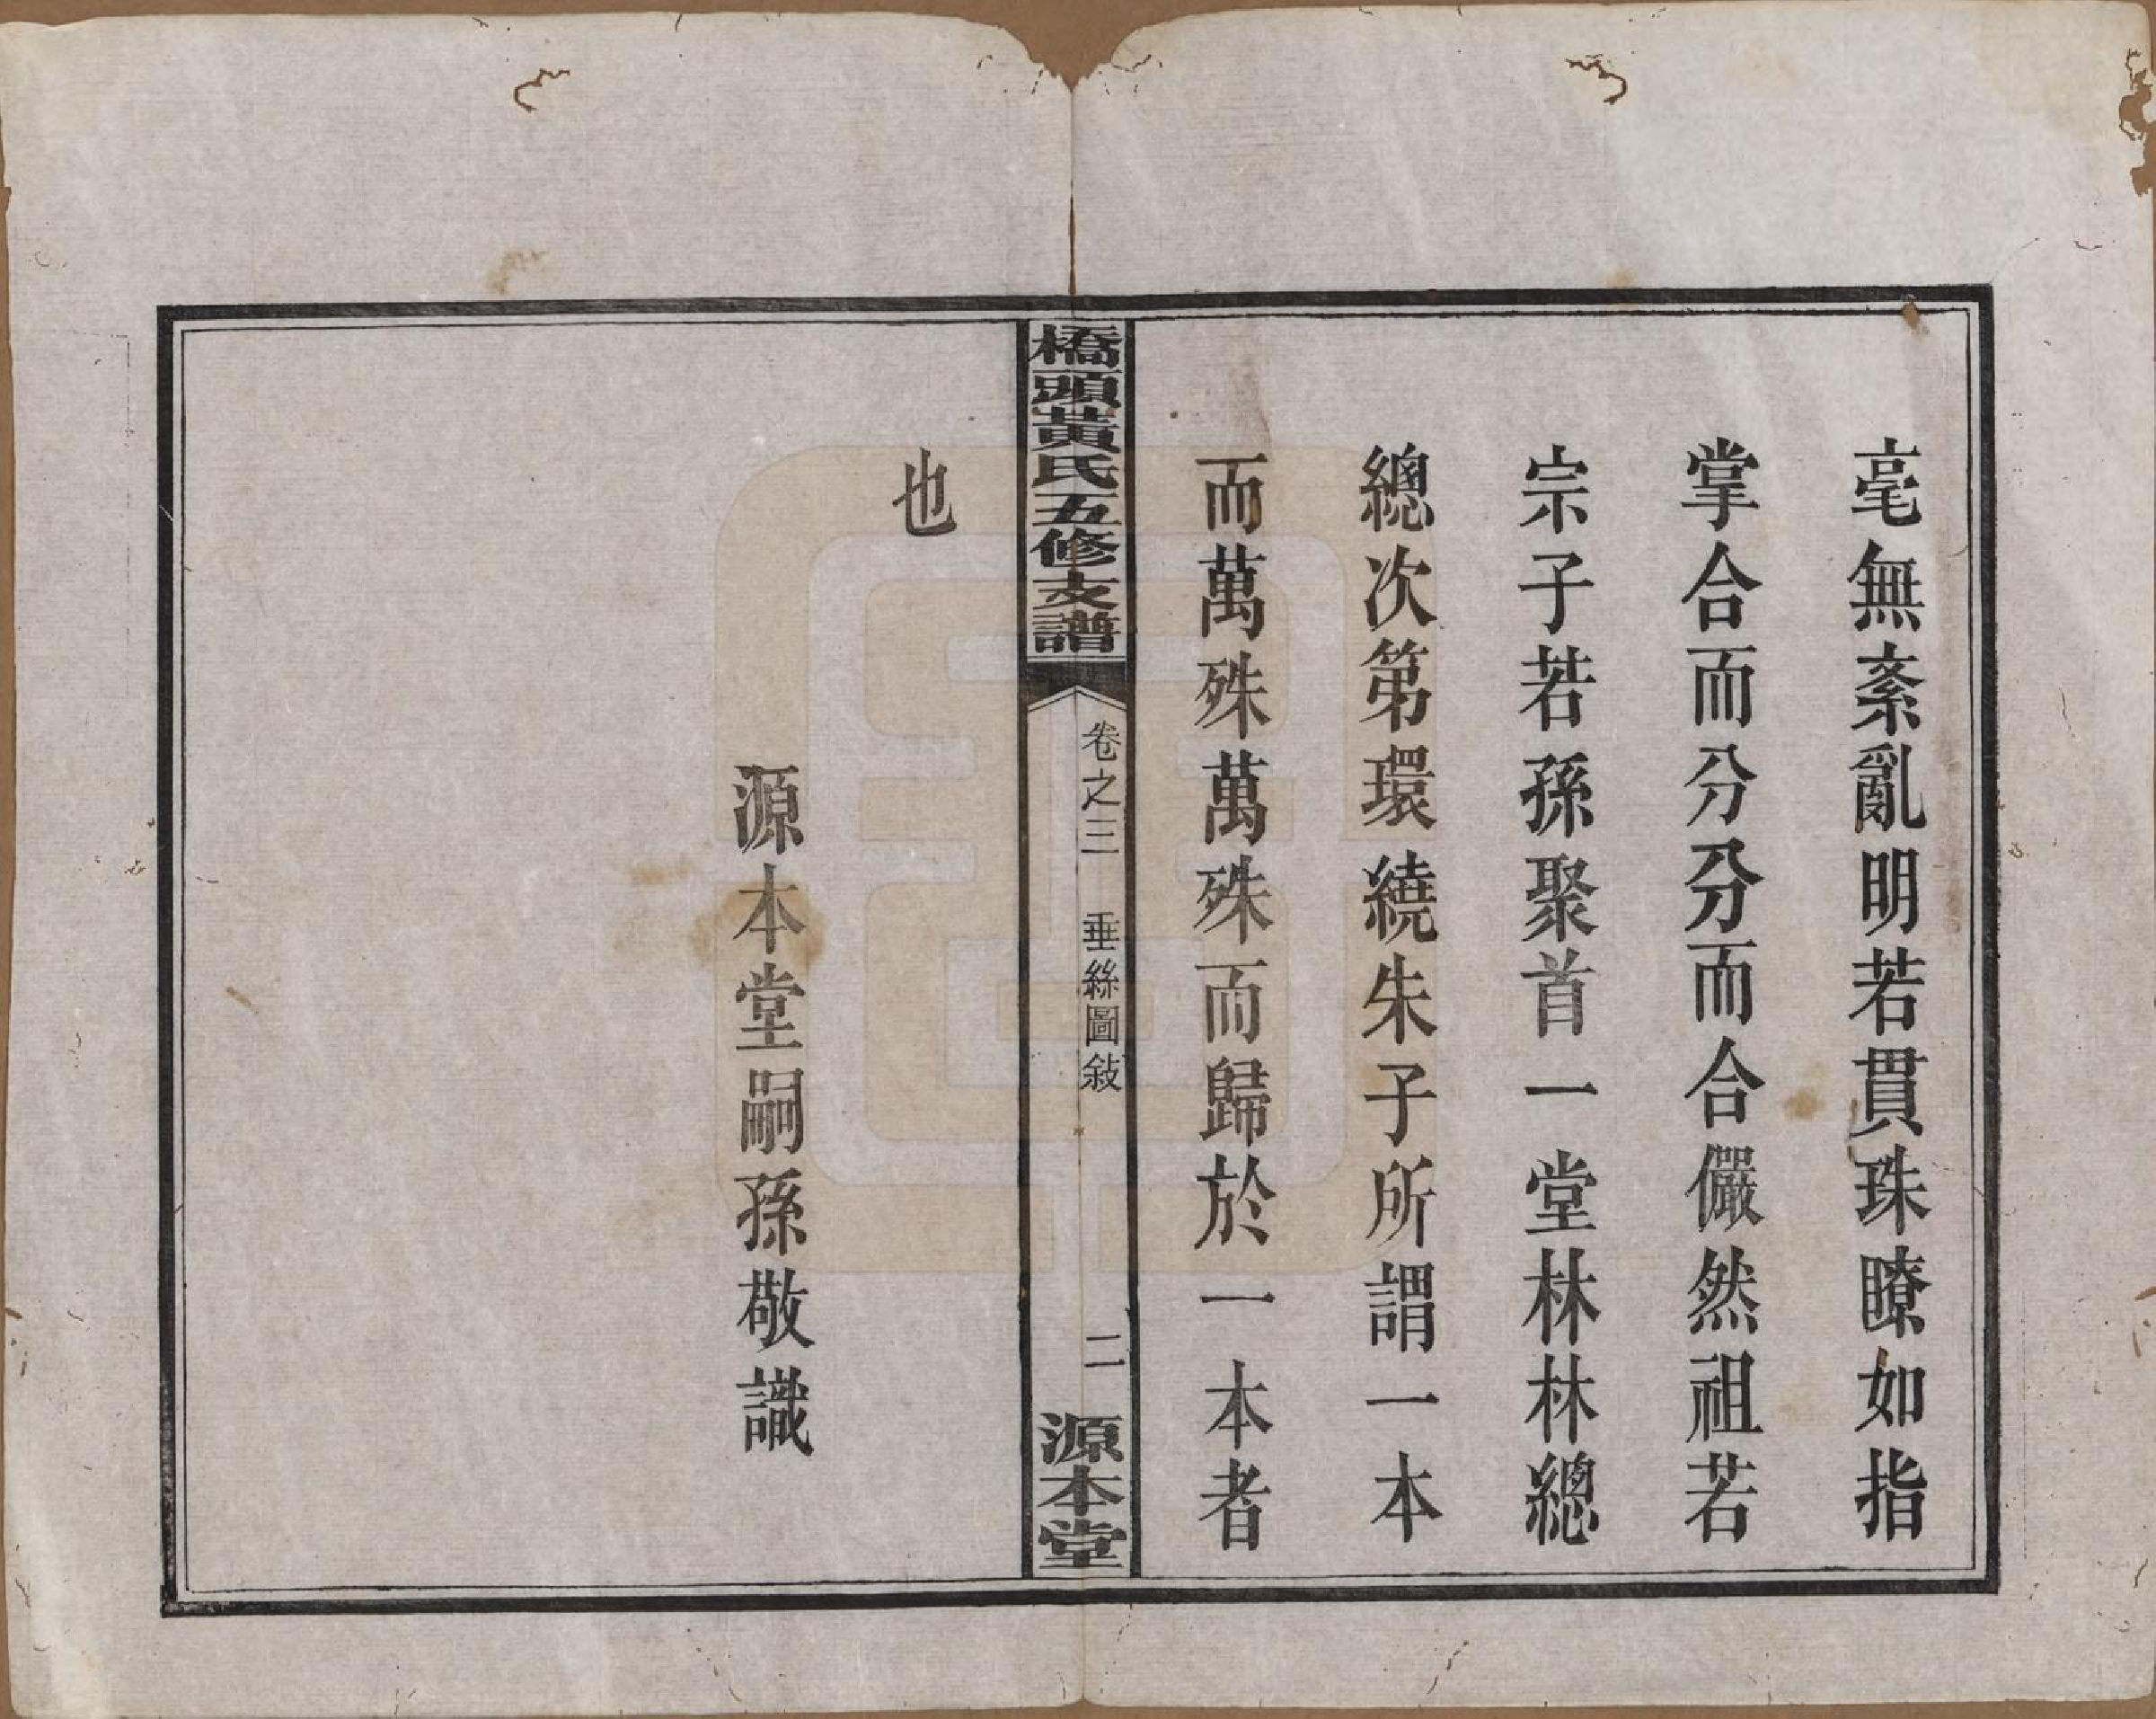 毫無紊亂明若貫珠瞭如指
掌合而分分而合儼然祖若
宗子若孫聚首一堂林林總
總次第環繞朱子所謂一本
而萬殊萬殊而歸於一本者
橋頭黃氏五修支譜
卷之三 垂絲圖敍
二
源本堂
也
源本堂嗣孫敬識